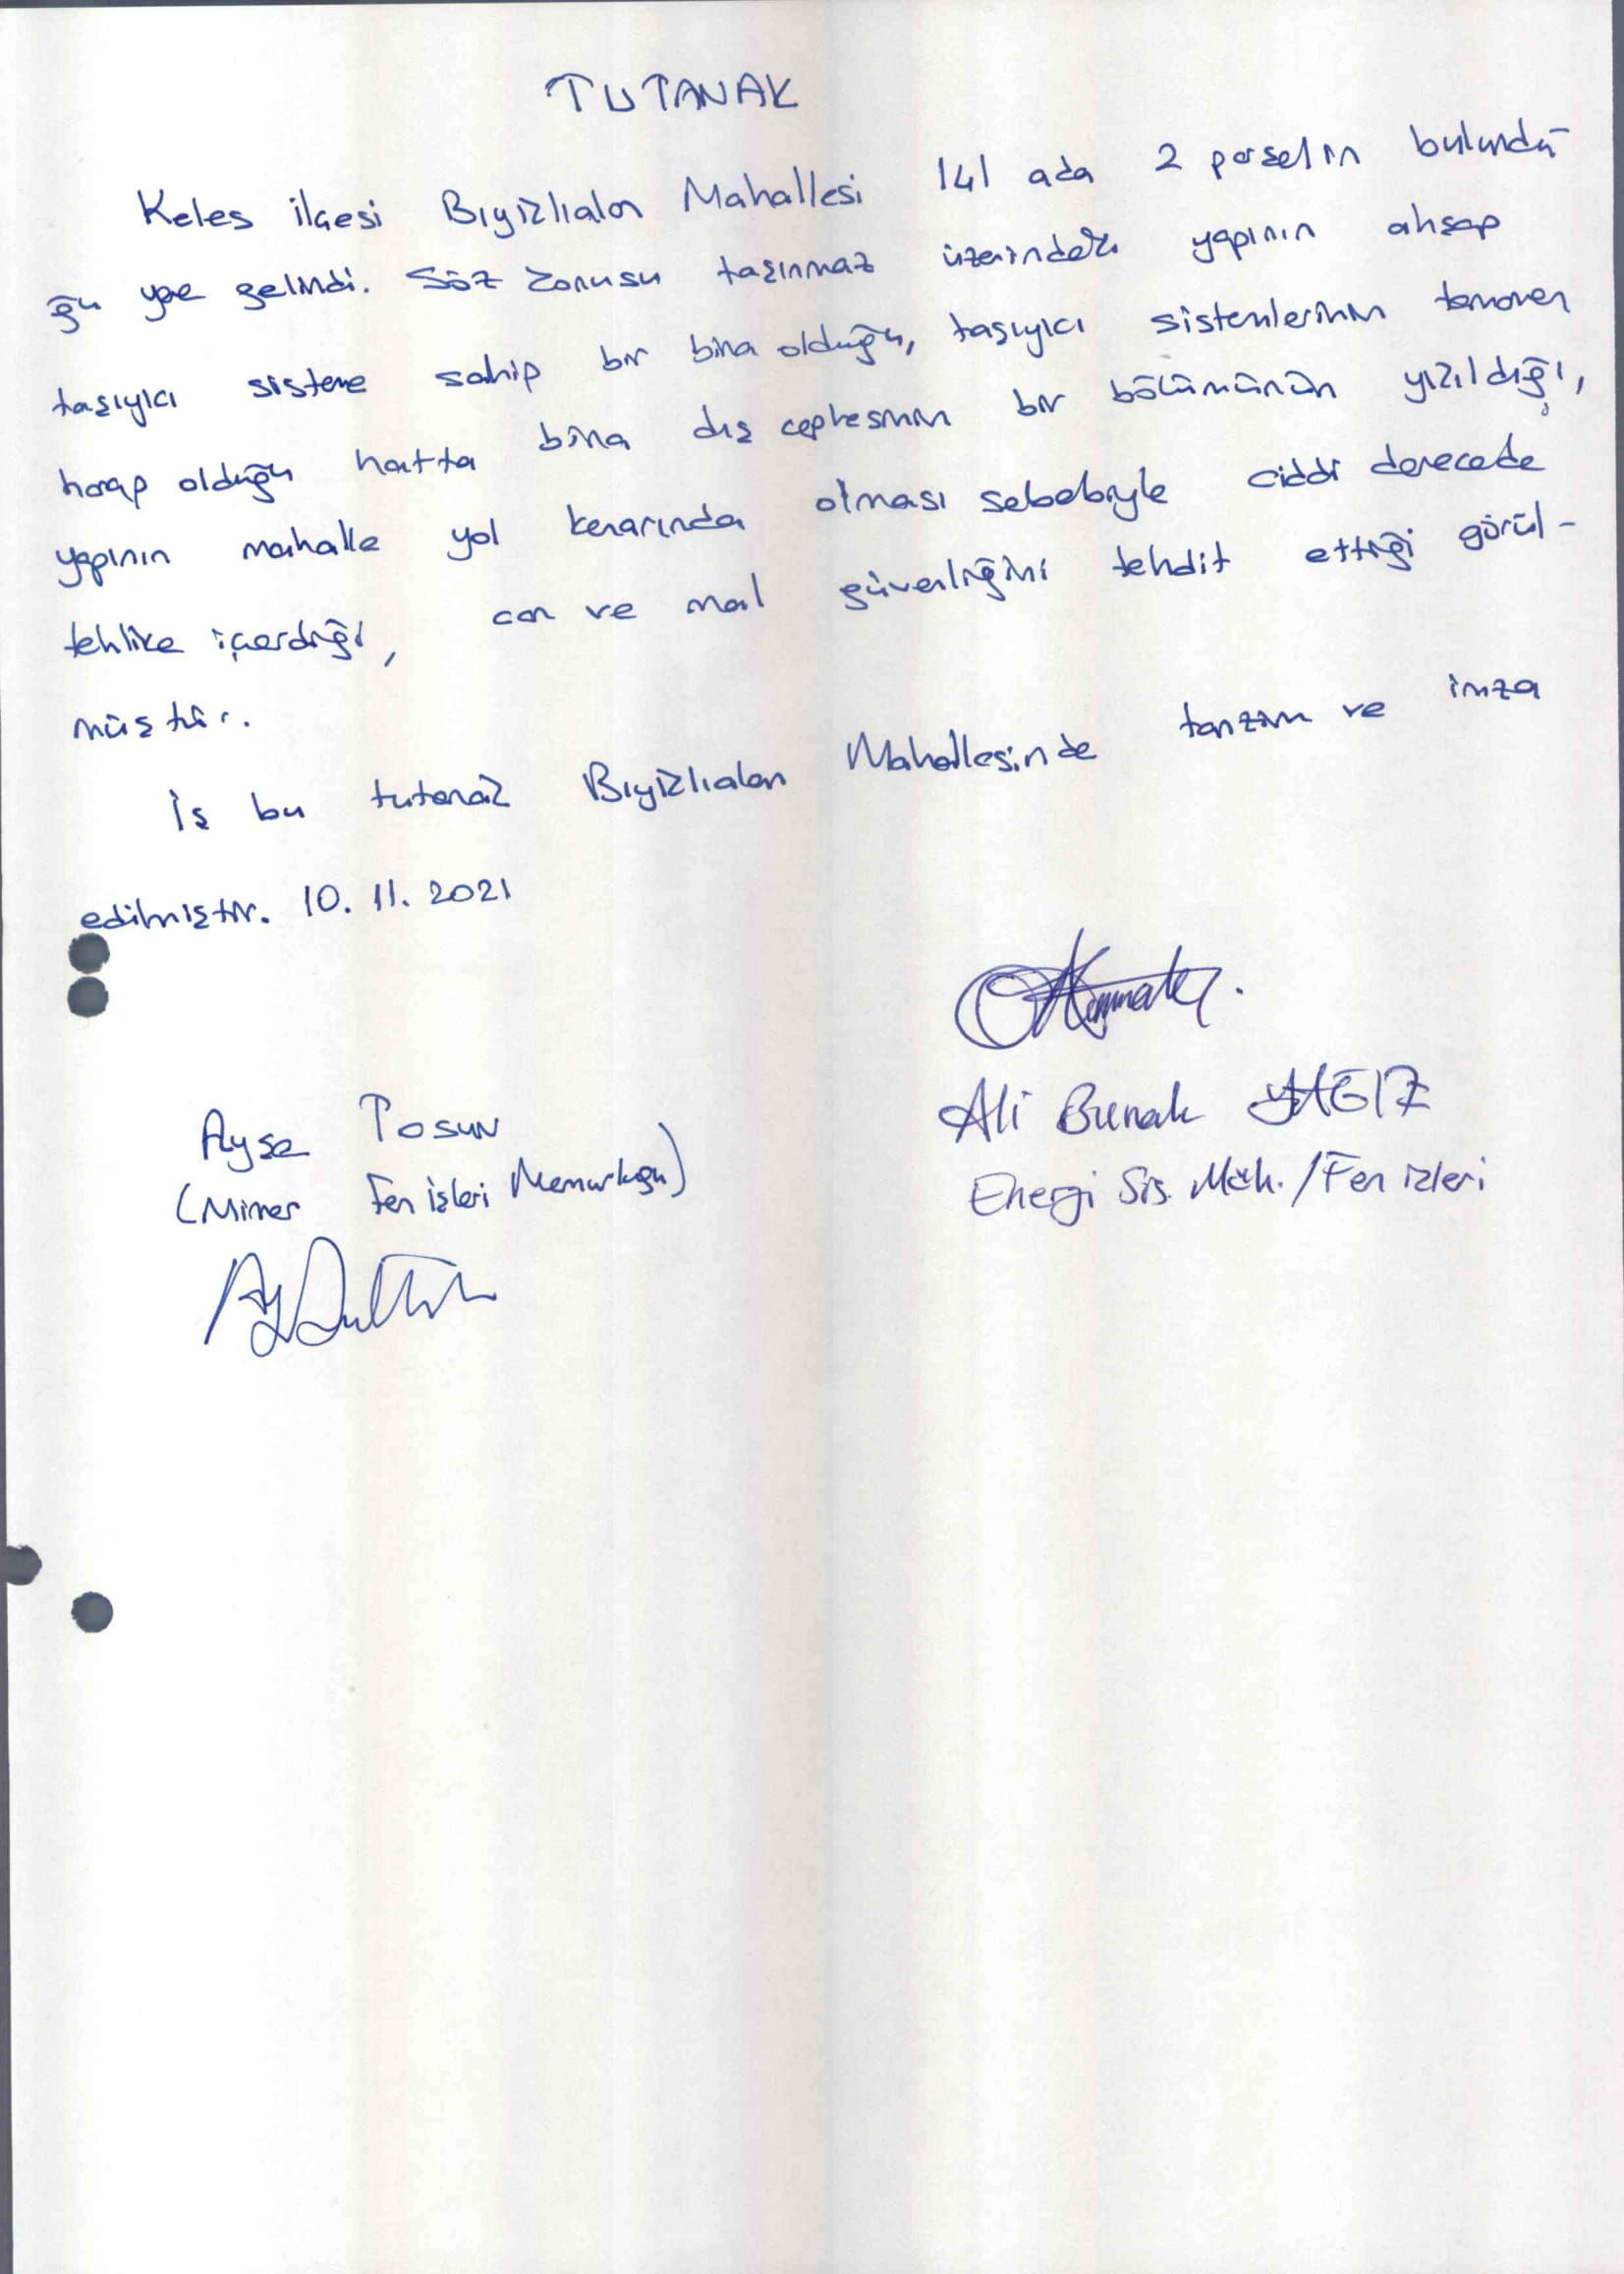 TUTANAK
Keles ilçesi Bıyıklıalan Mahallesi 141 ada 2 parselin bulundu-
ğu yere gelindi. Söz konusu taşınmaz üzerindeki yapının ahşap
taşıyıcı sisteme sahip bir bina olduğu, taşıyıcı sistemlerinin tamamen
harap olduğu hatta bina dış cephesinin bir bölümünün yıkıldığı,
yapının mahalle yol kenarında olması sebebiyle ciddi derecede
tehlike içerdiği, can ve mal güvenliğini tehdit ettiği görül-
müştür.
İş bu tutanak Bıyıklıalan Mahallesinde tanzim ve imza
edilmiştir. 10. 11. 2021
Ayşe Tosun
(Mimar Fen işleri Memurluğu)
Ali Burak YAĞIZ
Enerji Sis. Müh. / Fen işleri